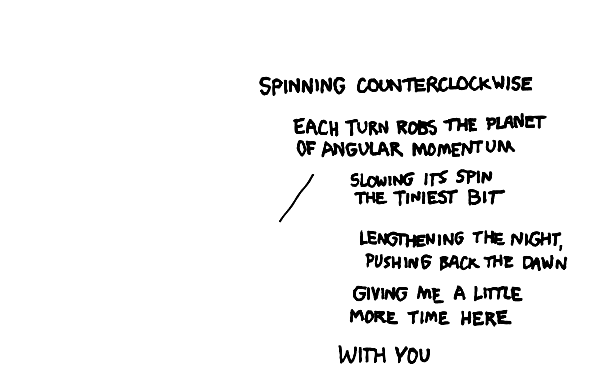 SPINNING COUNTERCLOCKWISE
EACH TURN ROBS THE PLANET
OF ANGULAR MOMENTUM
SLOWING ITS SPIN
THE TINIEST BIT
LENGTHENING THE NIGHT,
PUSHING BACK THE DAWN
GIVING ME A LITTLE
MORE TIME HERE
WITH YOU